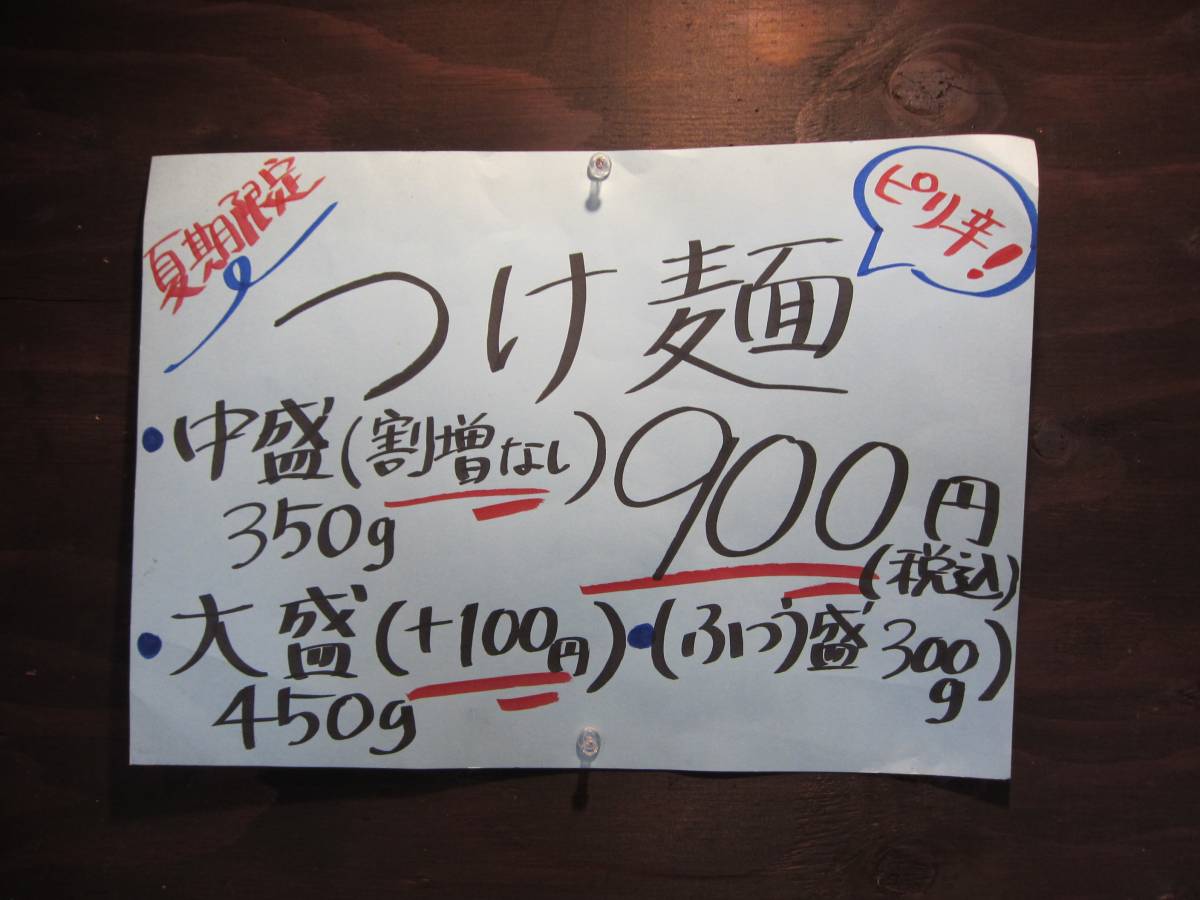 夏期限定
ピリ辛!
つけ麺
・中盛(割増なし)
350g
900円
(税込)
・大盛(+100円)
450g
・(ふつう盛300g)